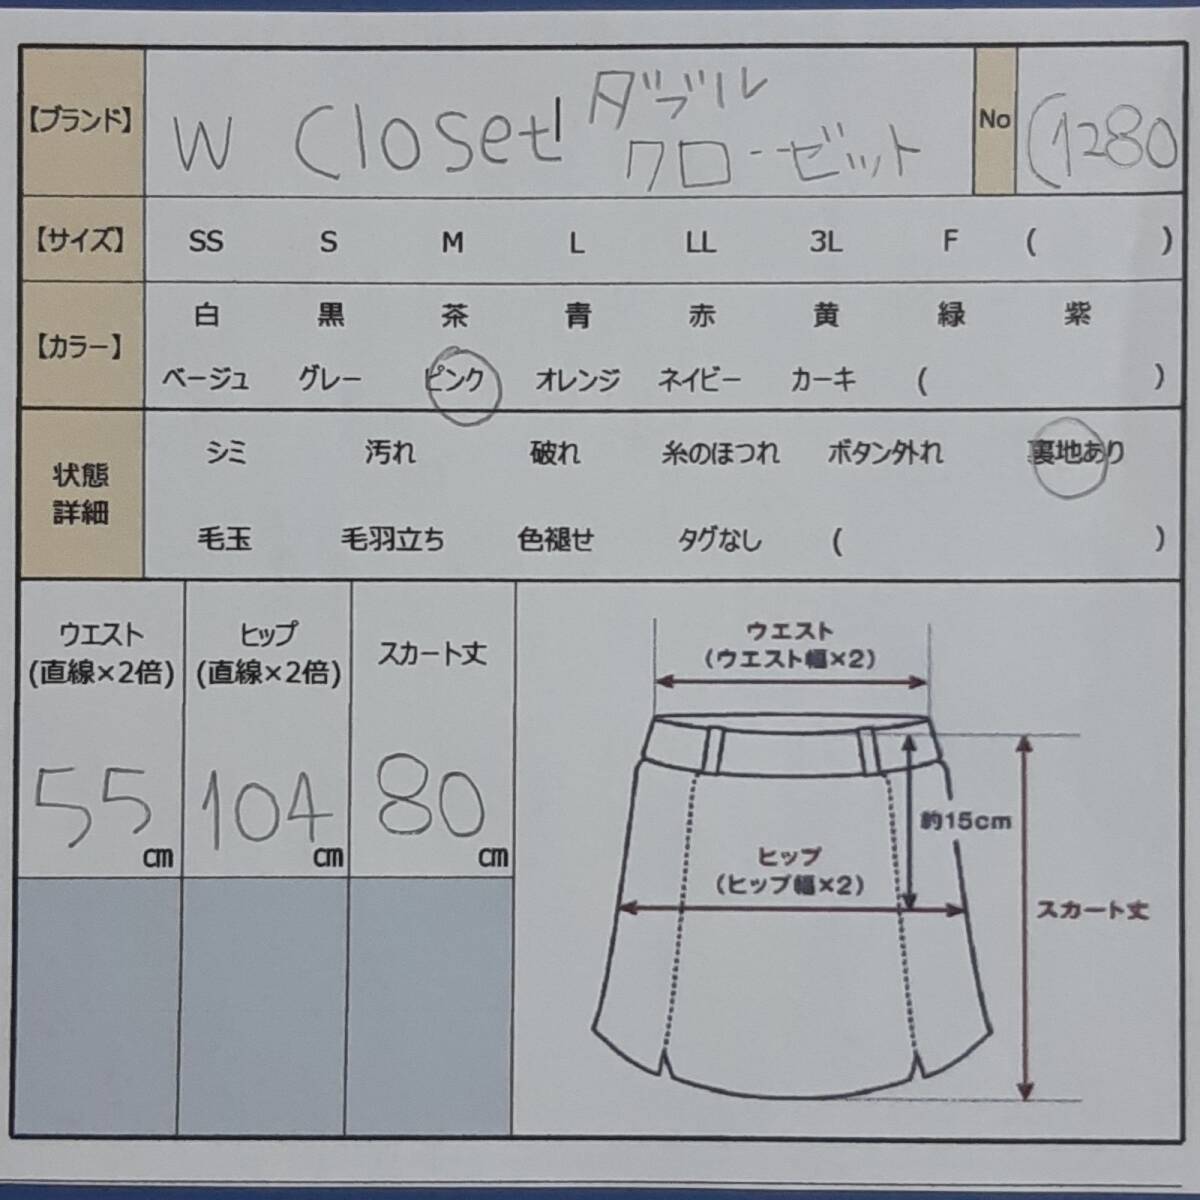 【ブランド】 W Closet ダブル
クローゼット No (1280
【サイズ】 SS S M L LL 3L F ( )
【カラー】 白 黒 茶 青 赤 黄 緑 紫
ベージュ グレー ピンク オレンジ ネイビー カーキ ( )
状態
詳細
シミ 汚れ 破れ 糸のほつれ ボタン外れ 裏地あり
毛玉 毛羽立ち 色褪せ タグなし ( )
ウエスト
(直線×2倍)
55 cm
ヒップ
(直線×2倍)
104 cm
スカート丈
80 cm
ウエスト
(ウエスト幅×2)
約15cm
ヒップ
(ヒップ幅×2)
スカート丈